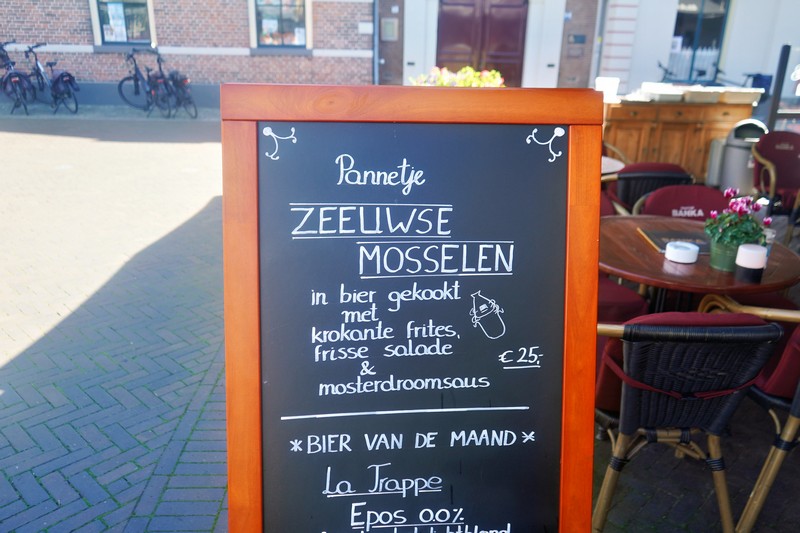 Pannetje
ZEEUWSE
MOSSELEN
in bier gekookt
met
krokante frites,
frisse salade
&
mosterdroomsaus
€ 25,-
*BIER VAN DE MAAND*
La Trappe
Epos 0.0%